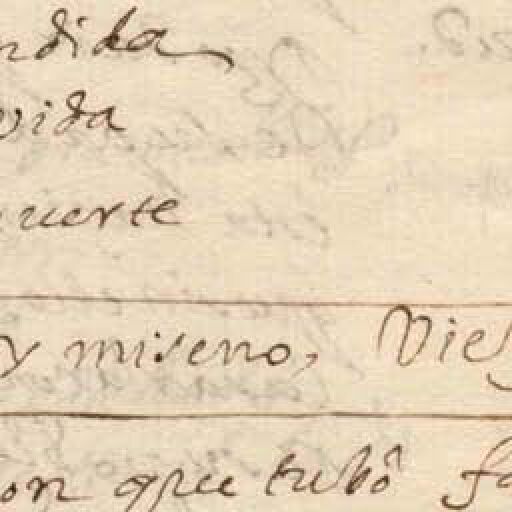 ndida
vida
uerte
y misero, Vies
on que tubô fa